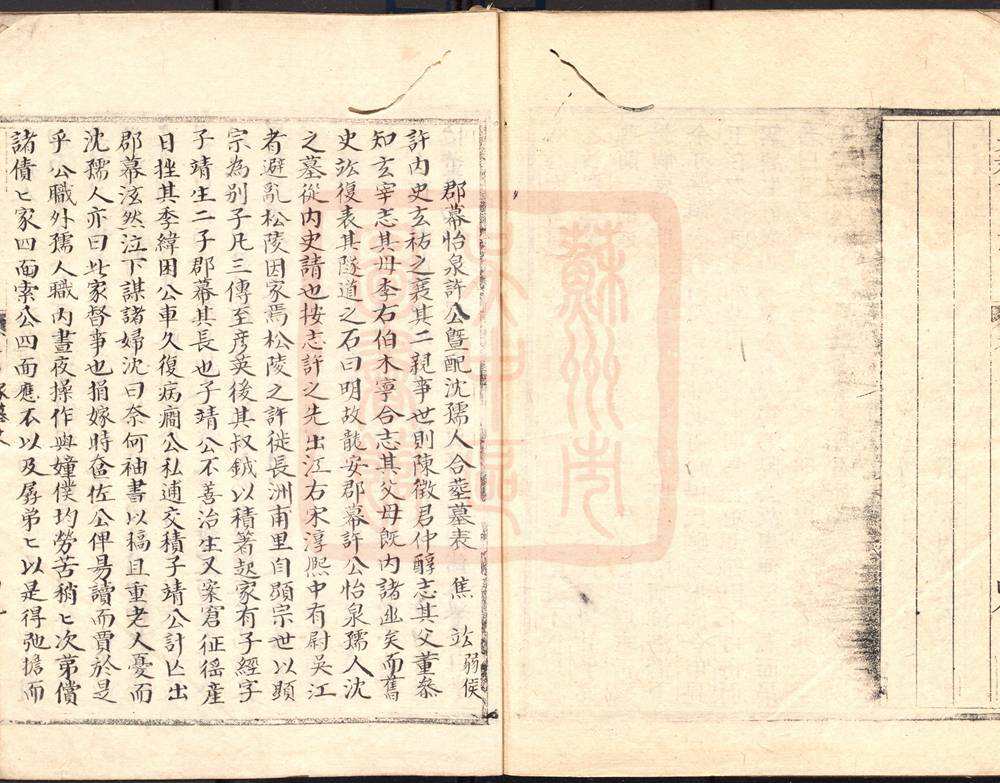 郡幕怡泉許公曁配沈孺人合葬墓表 焦竑弱侯
許内史玄祐之襄其二親事世則陳徵君仲醇志其父董叅
知玄宰志其母李右伯木寧合志其父母既内諸幽矣而舊
史竑復表其隧道之石曰明故龍安郡幕許公怡泉孺人沈
之墓從内史請也按志許之先出江右宋淳熙中有尉吳江
者避亂松陵因家焉松陵之許徙長洲甫里自顯宗世以顯
宗為别子凡三傳至彦英後其叔鉞以積箸起家有子經字
子靖生二子郡幕其長也子靖公不善治生又寀窘征徭産
日挫其季緯困公車久復病痼公私逋交積子靖公計亡出
郡幕泫然泣下謀諸婦沈曰奈何袖書以稿且重老人憂而
沈孺人亦曰此家督事也捐嫁時奩佐公俾昜讀而賈於是
乎公職外孺人職内晝夜操作與僮僕均勞苦稍匕次第償
諸債匕家四面索公四面應不以及孱弟匕以是得弛擔而
蘇州市
吳中區
圖書館